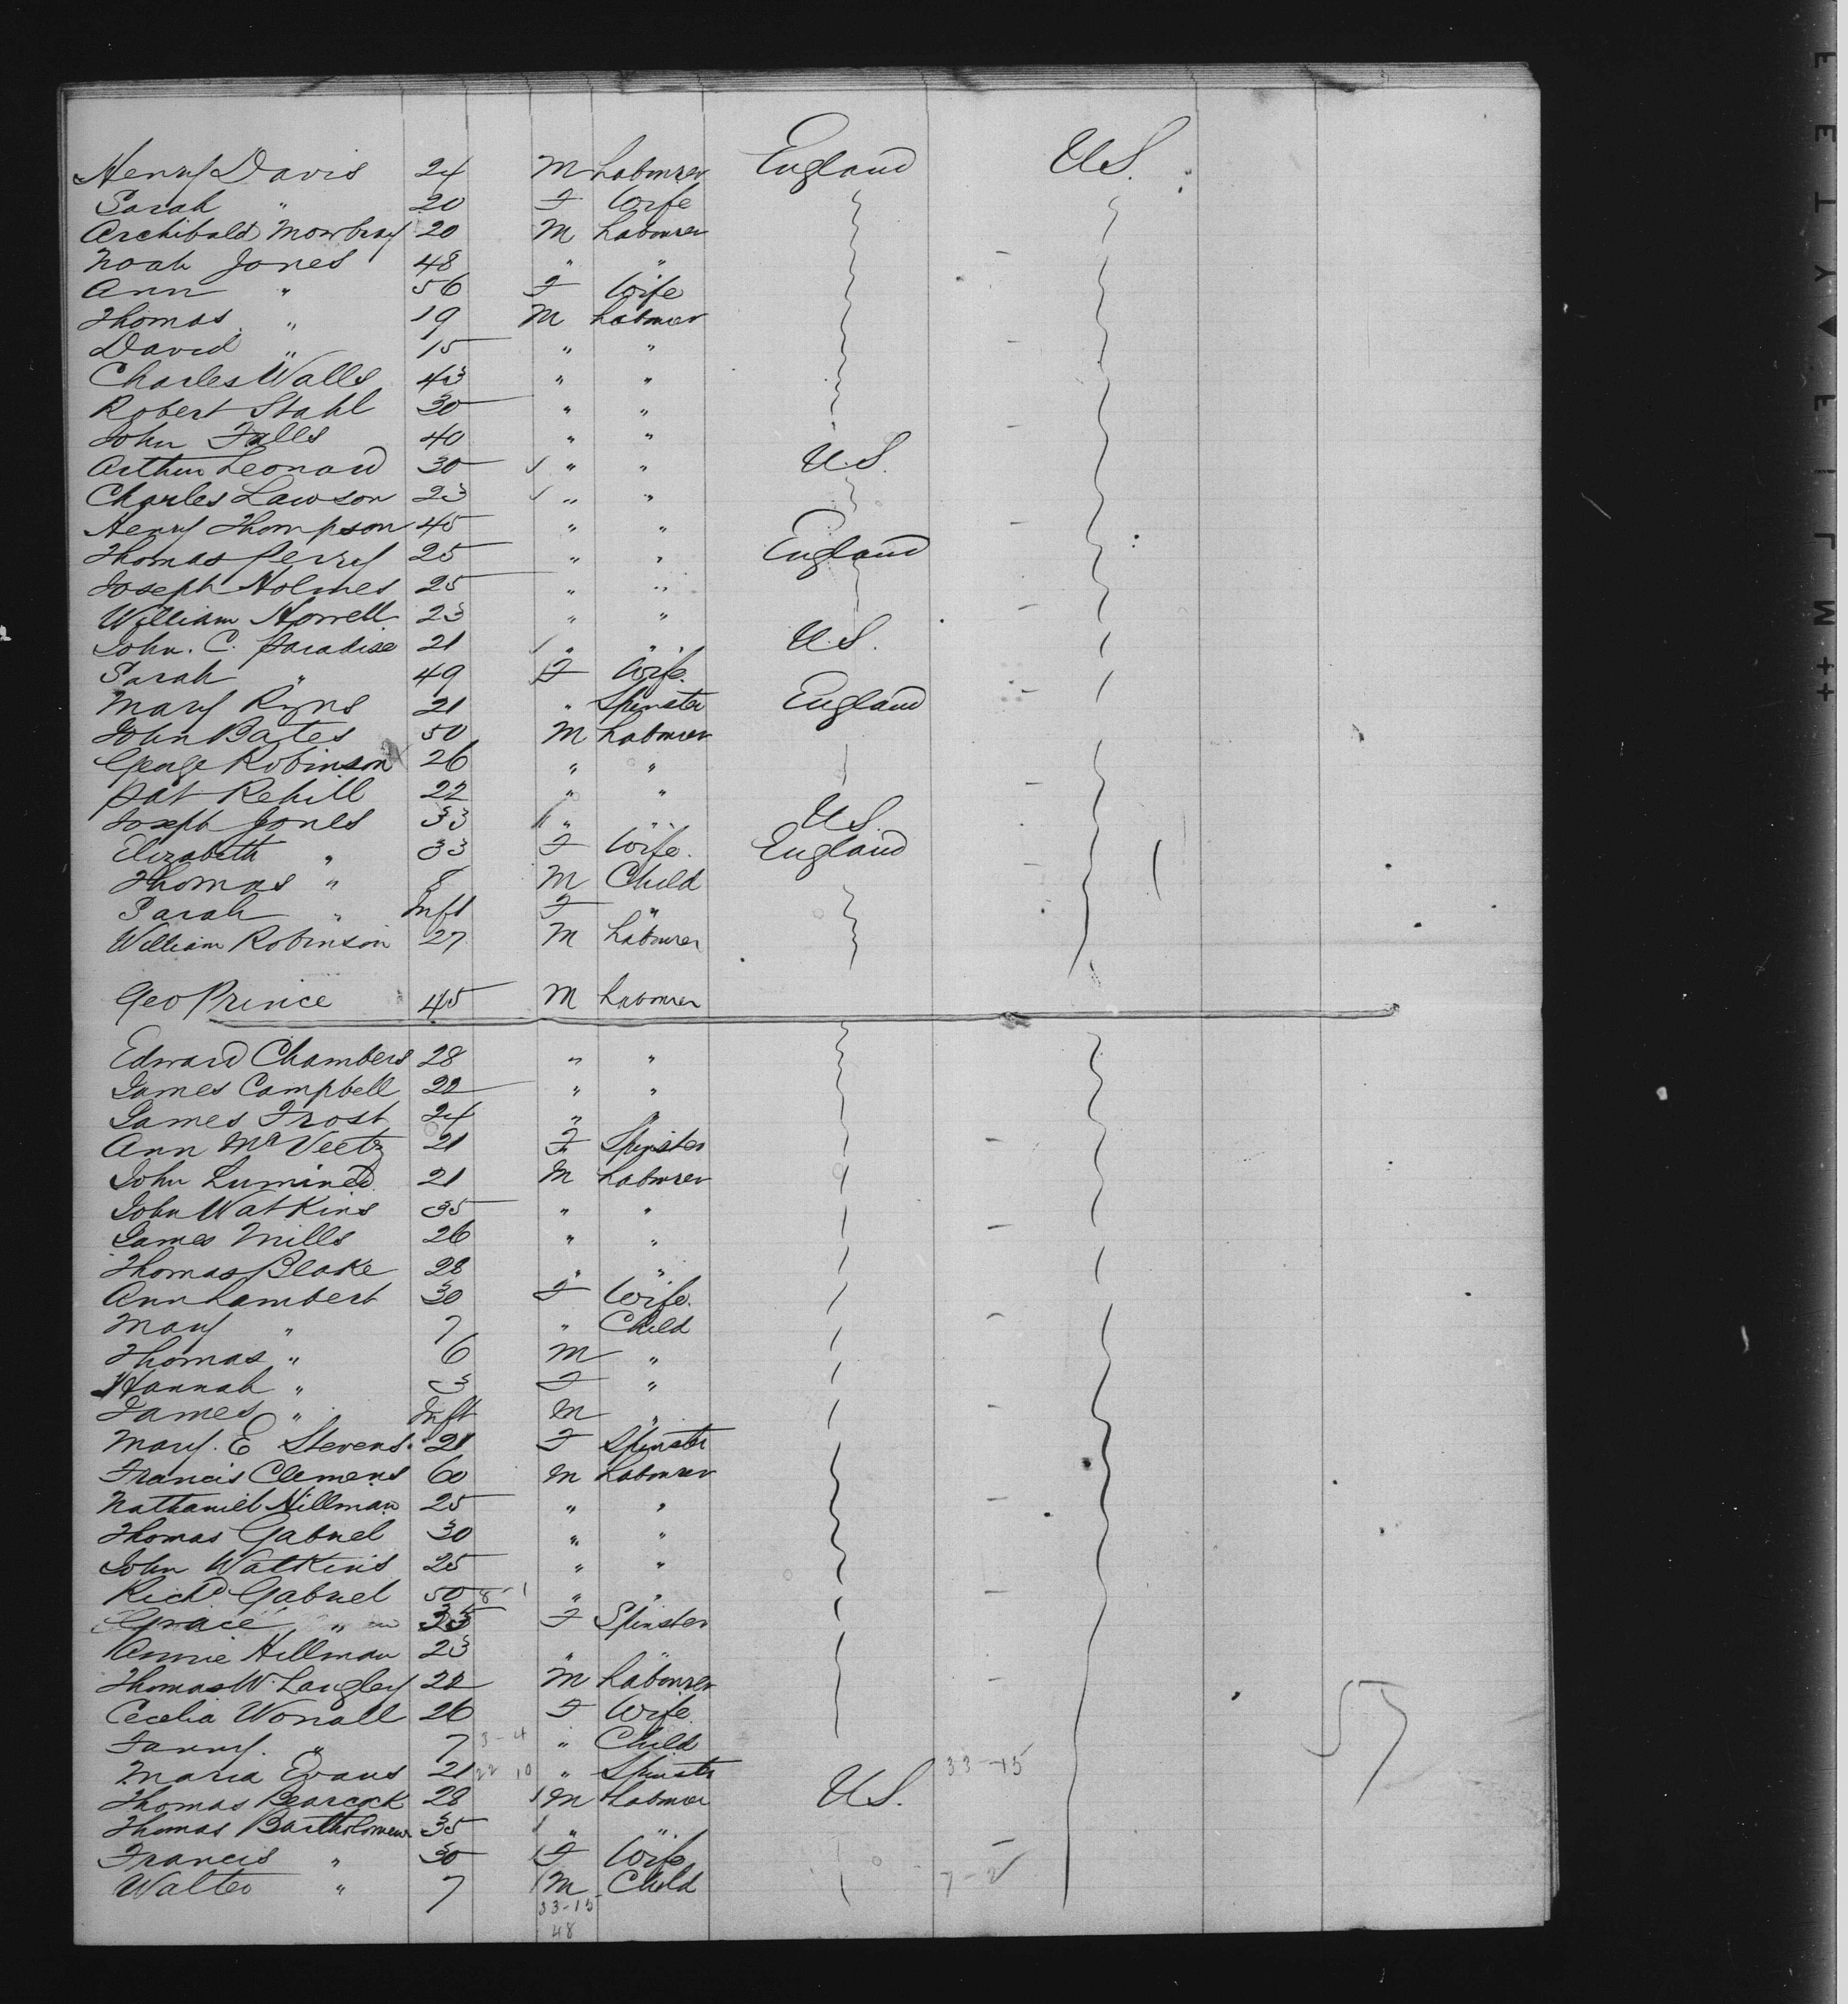 Henry Davis 24 M Labourer England U.S.
Sarah " 20 F Wife
Archibald Mowbray 20 M Labourer
Noah Jones 48 " "
Ann " 56 F Wife
Thomas " 19 M Labourer
David " 15 " "
Charles Walls 43 " "
Robert Stahl 30 " "
John Falls 40 " "
Arthur Leonard 30 " " U.S.
Charles Lawson 23 " "
Henry Thompson 45 " "
Thomas Perry 25 " " England
Joseph Holmes 25 " "
William Howell 23 " "
John. C. Paradise 21 " " U.S.
Sarah " 49 F Wife.
Mary Ryns 21 " Spinster England
John Bates 50 M Labourer
George Robinson 26 " "
Pat Rehill 22 " "
Joseph Jones 33 " " U.S.
Elizabeth " 33 F Wife. England
Thomas " 8 M Child
Sarah " Inft F "
William Robinson 27 M Labourer
Geo Prince 45 M Labourer
Edward Chambers 28 " "
James Campbell 22 " "
James Frost 24 " "
Ann McVeetz 21 F Spinster
John Lumined 21 M Labourer
John Watkins 35 " "
James Mills 26 " "
Thomas Blake 28 " "
Ann Lambert 30 F Wife.
Mary " 7 " Child
Thomas " 6 M "
Hannah " 3 F "
James " Inft M "
Mary. E Stevens 21 F Spinster
Francis Clemens 60 M Labourer
Nathaniel Hillman 25 " "
Thomas Gabriel 30 " "
John Watkins 25 " "
Richd Gabriel 50 8-1 " "
Grace " F Spinster
Annie Hillman 23 " "
Thomas W. Langley 22 M Labourer
Cecelia Worrall 26 F Wife.
Fanny. " 7 3-4 " Child
Maria Evans 21 22 10 " Spinster 33-15
Thomas Bearcock 28 M Labourer U.S.
Thomas Bartholomew 35 " "
Francis " 30 F Wife
Walter " 7 M Child 7-2
33-15
48
57